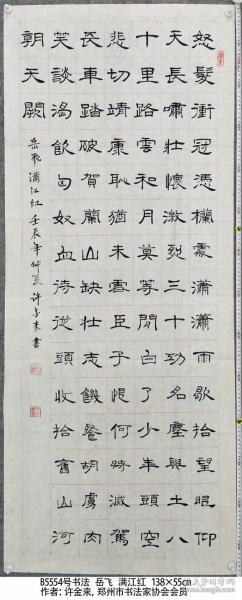 怒髮衝冠憑欄處瀟瀟雨歇抬望眼仰
天長嘯壯懷激烈三十功名塵與土八
千里路雲和月莫等閒白了少年頭空
悲切靖康恥猶未雪臣子恨何時滅駕
長車踏破賀蘭山缺壯志饑餐胡虜肉
笑談渴飲匈奴血待從頭收拾舊山河
朝天闕
岳飛 滿江紅 壬辰年仲夏 許金來書
B5554号书法 岳飞 满江红 138×55cm
作者: 许金来, 郑州市书法家协会会员